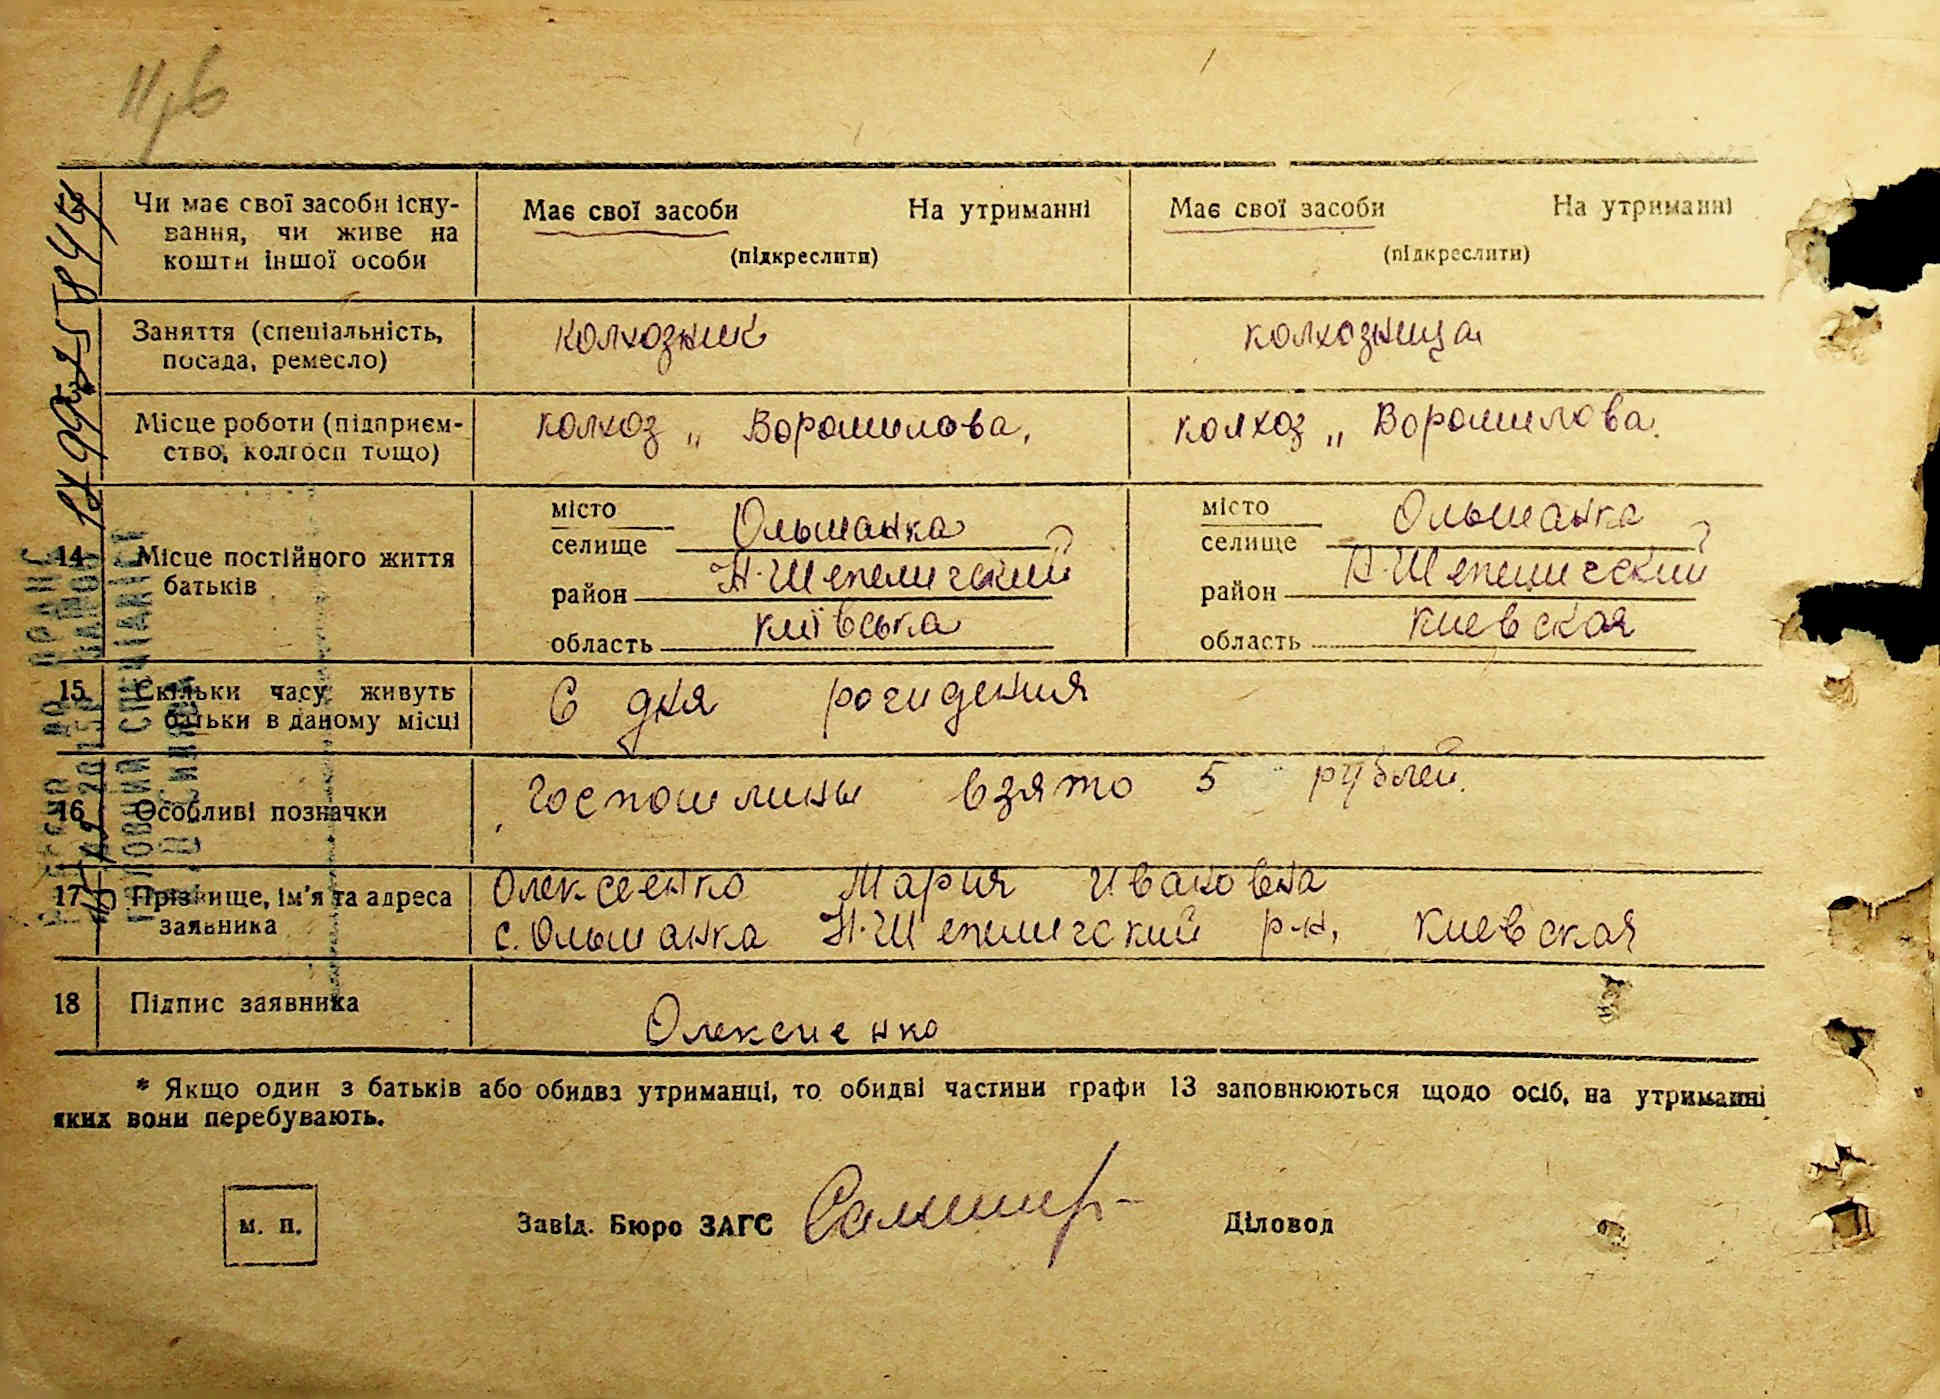 Чи має свої засоби існу-
вання, чи живе на
кошти іншої особи
Має свої засоби На утриманні
(підкреслити)
Має свої засоби На утриманні
(підкреслити)
Заняття (спеціальність,
посада, ремесло)
колхозник
колхозница
Місце роботи (підприєм-
ство, колгосп тощо)
колхоз „ Ворошилова,
колхоз „ Ворошилова.
14 Місце постійного життя
батьків
місто
селище Ольшанка
район Н-Шепеличский
область київська
місто
селище Ольшанка
район Н-Шепеличский
область киевская
15 Скільки часу живуть
батьки в даному місці
С дня рождения
16 Особливі позначки
Госпошлины взято 5 рублей.
17 Прізвище, ім'я та адреса
заявника
Олексеенко Мария Ивановна
с. Ольшанка Н-Шепеличский р-н, киевская
18 Підпис заявника
Олексиенко
* Якщо один з батьків або обидва утриманці, то обидві частини графи 13 заповнюються щодо осіб, на утриманні
яких вони перебувають.
м. п.
Завід. Бюро ЗАГС
Діловод